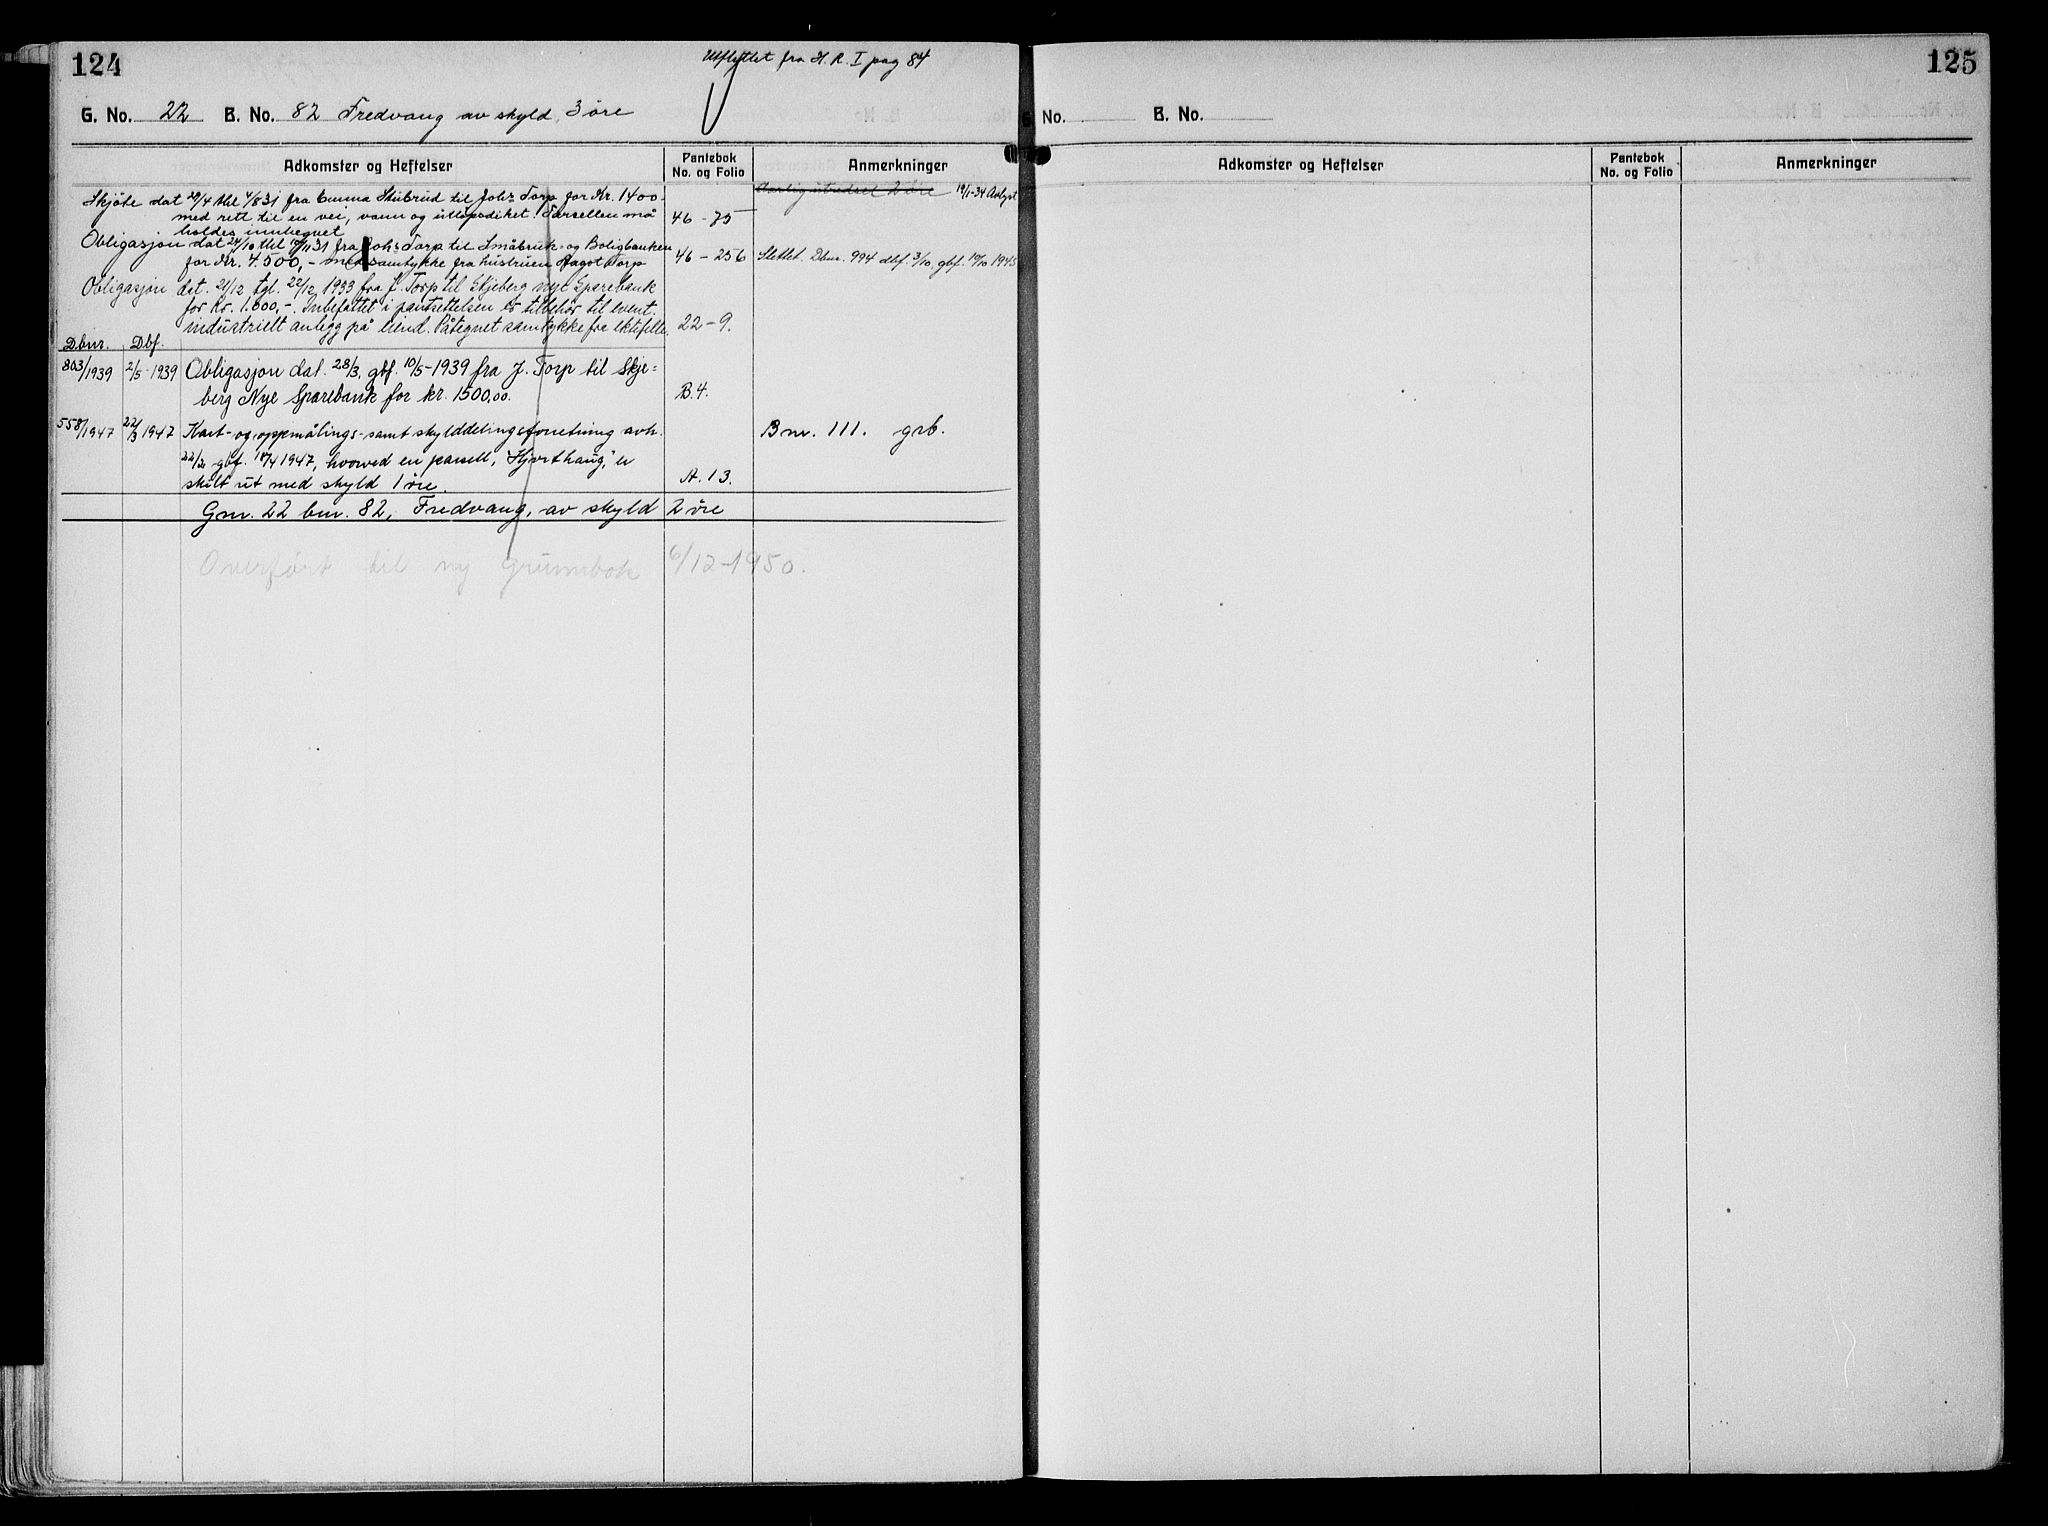 124
Utflyttet fra H. R. I pag 84
G. No. 22 B. No. 82 Fredvang av skyld 3 øre
Adkomster og Heftelser
Pantebok No. og Folio
Anmerkninger
Skjøte dat 29/4 thl 4/8 31 fra Emma Stubrud til Johs Torp for Kr. 1400.-
Aarlig utredsel 2 øre 19/1-34 Avlyst
med rett til en vei, vann og utløpsdiket. Parsellen må
46 - 75
holdes innhegnet
Obligasjon dat 24/10 thl 10/11 31 fra Johs Torp til Småbruk- og Boligbanken
for Kr. 4.500,- med samtykke fra hustruen Aagot Torp
46 - 256
Slettet. Dbnr. 994 dbf. 3/10, gbf. 19/10 1945
Obligasjon dat. 21/12 tgl. 22/12 1933 fra J. Torp til Skjeberg nye Sparebank
for Kr. 1.000,-. Inbefattet i pantsettelsen er tilbehør til event.
industrielt anlegg på eiend. Påtegnet samtykke fra ektefelle.
22 - 9.
Dbnr. Dbf.
803/1939 2/5-1939 Obligasjon dat. 28/3, gbf. 10/5-1939 fra J. Torp til Skje=
berg Nye Sparebank for kr. 1500,00.
B. 4.
558/1947 22/3 1947 Kart- og oppmålings- samt skylddelingsforretning avh.
Bnr. 111. grb.
22/2 gbf. 18/4 1947, hvorved en parsell, "Hjorthaug," er
skilt ut med skyld 1 øre.
A. 13.
Gnr. 22 bnr. 82, Fredvang, av skyld 2 øre
Overført til ny grunnbok 6/12-1950.
125
G. No. B. No.
Adkomster og Heftelser
Pantebok No. og Folio
Anmerkninger